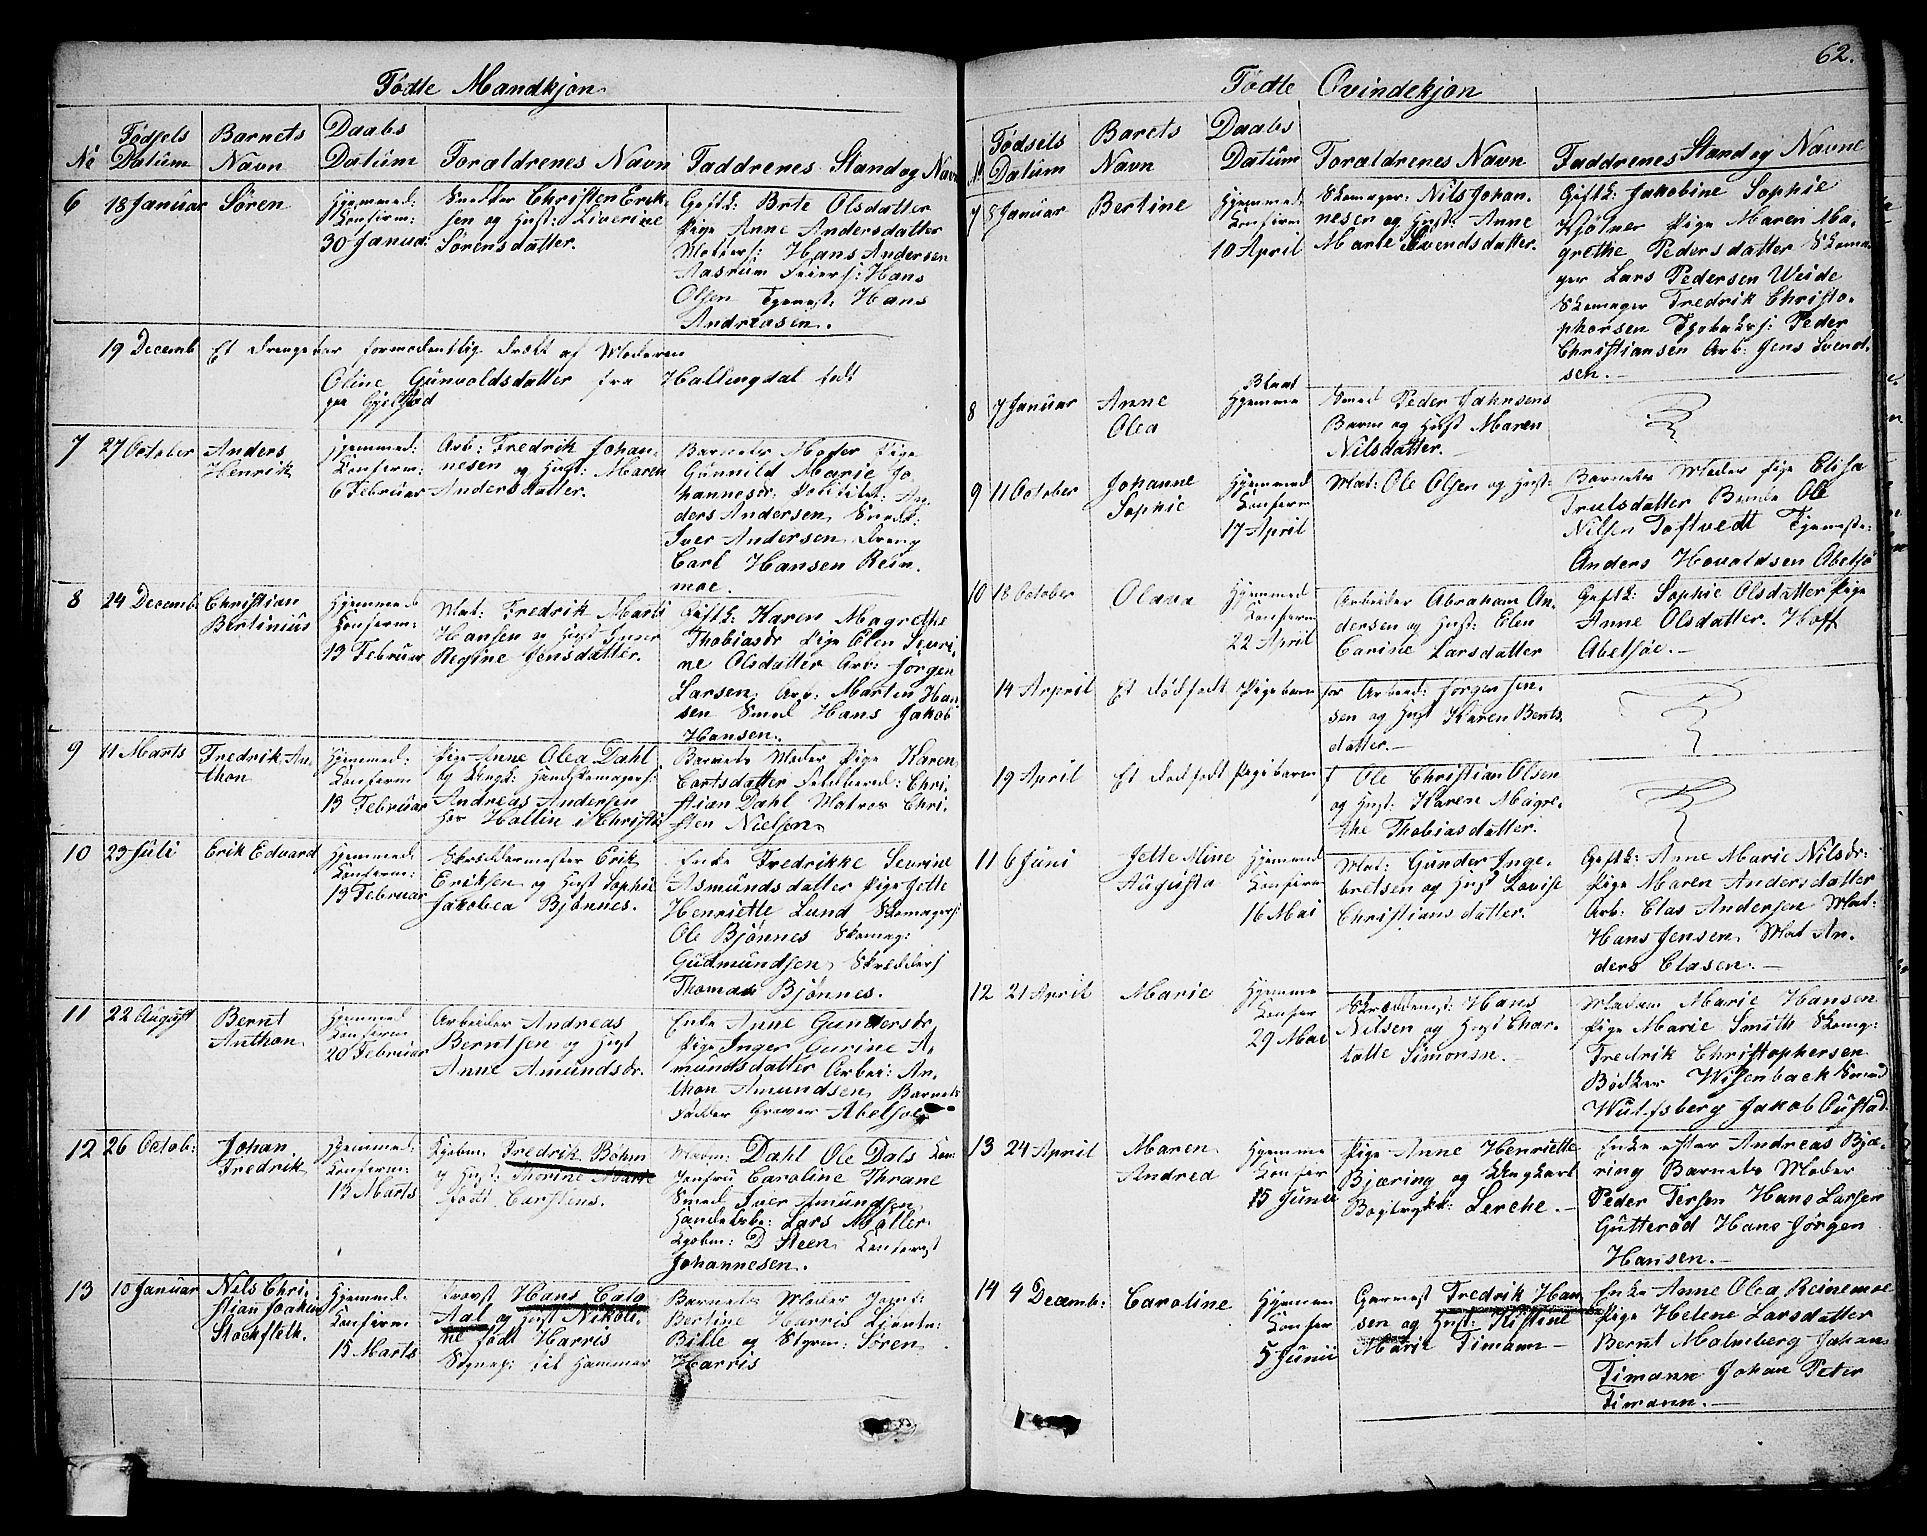 Fødte Mandkjøn
No
Fødsels Datum
Barnets Navn
Daabs Datum
Forældrenes Navn
Faddrenes Stand og Navn
6
18 Januar
Søren
Hjemmed:
Konfirm:
30 Januar
Snedker Christen Erik-
sen og Hust: Liverine
Sørensdatter.
Giftk: Brte Olsdatter
Pige Anne Andersdatter
Matrs: Hans Andersen
Aasrum Feiers: Hans
Olsen Tjenest: Hans
Andreasen.
19 Decemb
Et Drengebar formodentlig dræbt af Moderen
Oline Gunvoldsdatter fra Hallingdal født
paa Gjelstad
7
27 October
Anders
Henrik
Hjemmed:
Konferm:
6 Februar
Arb: Fredrik Johan-
nesen og Hust: Maren
Andersdatter.
Barnets Moder Pige
Gunnild Marie Jo
hannesdr. Politibet: An
ders Andersen, Snedk:
Iver Andersen Dreng
Carl Hansen Rein
moe.
8
24 Decemb:
Christian
Bertinius
Hjemmed
Konferm:
13 Februar
Mat: Fredrik Marti
Hansen og Hust Inner
Regine Jensdatter.
Giftk: Karen Magrethe
Thobiasdr Pige Elen Sevri-
ne Olsdatter Arb: Jørgen
Larsen, Arb: Martin Han
sen Smed Hans Jakob
Hansen.
9
11 Marts
Fredrik An-
thon
Hjemmed:
Konferm
13 Februar
Pige Anne Olea Dahl
og Ungk: Handskemagers:
Andreas Andersen
her Hallin i Christi:
Barnets Moder Pige Karen
Carlsdatter Feldbered: Chri-
stian Dahl Matros Chri-
sten Nielsen
10
23 Juli
Erik Edvard
Hjemmed:
Konferm:
13 Februar
Skreddermester Erik
Eriksen og Hust Sophie
Jakobea Bjønnes.
Enke Fredrikke Sevrine
Asmundsdatter Pige Jette
Henriette Lund Skomagers:
Ole Bjønnes Skomag:
Gudmundsen, Skredders
Thomas Bjønnes.
11
22 August
Bernt
Anthon
Hjemmed
Konferm
20 Februar
Arbeider Andreas
Berntsen og Hust
Anne Amundsdr.
Enke Anne Gundersdr.
Pige Inger Gurine A-
mundsdatter Arbei: An-
thon Amundsen, Barnets
Fadder Graver Abelsøe
12
26 Octob:
Johan
Fredrik
Hjemmed:
Konferm:
13 Marts
Kjøbm: Fredrik Bøhm
og Hust: Thorine Marie
født Carstens.
Madm: Dahl Ole Dals Kone
Jenfru Caroline Thrane
Smed Iver Amundsen
Handelsb: Lars Møller
Kjøbm: D Steen,
Johannesen.
13
10 Januar
Nels Chri-
stian Joakim
Stockfleth.
Hjemmed
Konferm
15 Marts
Provst Hans Cato
Aal og Hust Nikoli-
ne født Harris
Sognep: til Hammer
Barnets Moder Jomf:
Bertine Harris Løjtn:
Bille og Styrm: Søren
Harris
62.
Fødte Qvindekjøn
No
Fødsels Datum
Barets Navn
Daabs Datum
Forældrenes Navn
Faddrenes Stand og Navne
7
5 Januar
Bertine
Hjemmed
Konferm:
10 April
Skomager: Nils Johan-
nesen og Hust: Anne
Marie Svendsdatter.
Giftk: Jakobine Sophie
Kjølner Pige Maren Ma-
grethe Pedersdatter Skoma
ger Lars Pedersen Weide
Skomager Fredrik Christo-
phersen Tjobaks: Peder
Christiansen Arb: Jens Svend-
sen.
8
7 Januar
Anne
Olea
Blaat
Hjemme
Smed Peder Jahnsens
Barn og Hust Maren
Nilsdatter.
9
11 October
Johanne
Sophie
Hjemmed
Konferm
17 April
Mat: Ole Olsen og Hust:
Barnets Moder Pige Elisa
Trulsdatter Bunde Ole
Nilsen Toftvedt Tjeneste:
Anders Hovaldsen Abelsø
10
18 October
Olava
Hjemmed
Konferm
22 April
Arbeider Abraham An-
dersen og Hust: Elen
Carine Larsdatter
Giftk: Sophie Olsdatter Pige
Anne Olsdatter. Hoff
Abelsøe.
14 Arpril
Et dødfødt Pigebarn for Arbeid: Jørgen Jen-
sen og Hust Karen Bents-
datter.
19 April
Et dødfødt Pigebarn f Ole Christian Olsen
og Hust: Karen Magre-
the Thobiasdatter.
11
6 Juni
Jette Aline
Augusta
Hjemmed
Konferm
16 Mai
Mat: Gunder Inge-
bretsen og Hust Lovise
Christiansdatter.
Giftk: Anne Marie Nilsdr.
Pige Maren Andersdatter
Arb: Clas Andersen Mat:
Hans Jensen, Mat An-
ders Clasen.
12
21 April
Marie
Hjemme
Konfer
29 Mai
Skreddermst: Hans
Nilsen og Hust Char-
lotte Simonsn.
Madam Marie Hansen
Pige Marie Smith Skomg:
Fredrik Christophersen
Bødker Wisenback Smed
Wulfsberg Jakob Qustad
13
24 April
Maren
Andrea
Hjemme
Konfer
15 Junii
Pige Anne Henriette
Bjæring og Ungkarl
Bogtrykk: Lerche.
Enke efter Andreas Bjæ-
ring Barnets Moder
Peder Tersen Hans Larsen
Gutterød Hans Jørgen
Hansen.
14
4 Decemb:
Caroline
Hjemme
Konfer
5 Junii
Garmest Fredrik Han
sen og Hust: Kistine
Marie Timann
Enke Anne Olea Reinemoe
Pige Helene Larsdatter
Bernt Malmberg Johan
Timann Johan Peter
Timann.